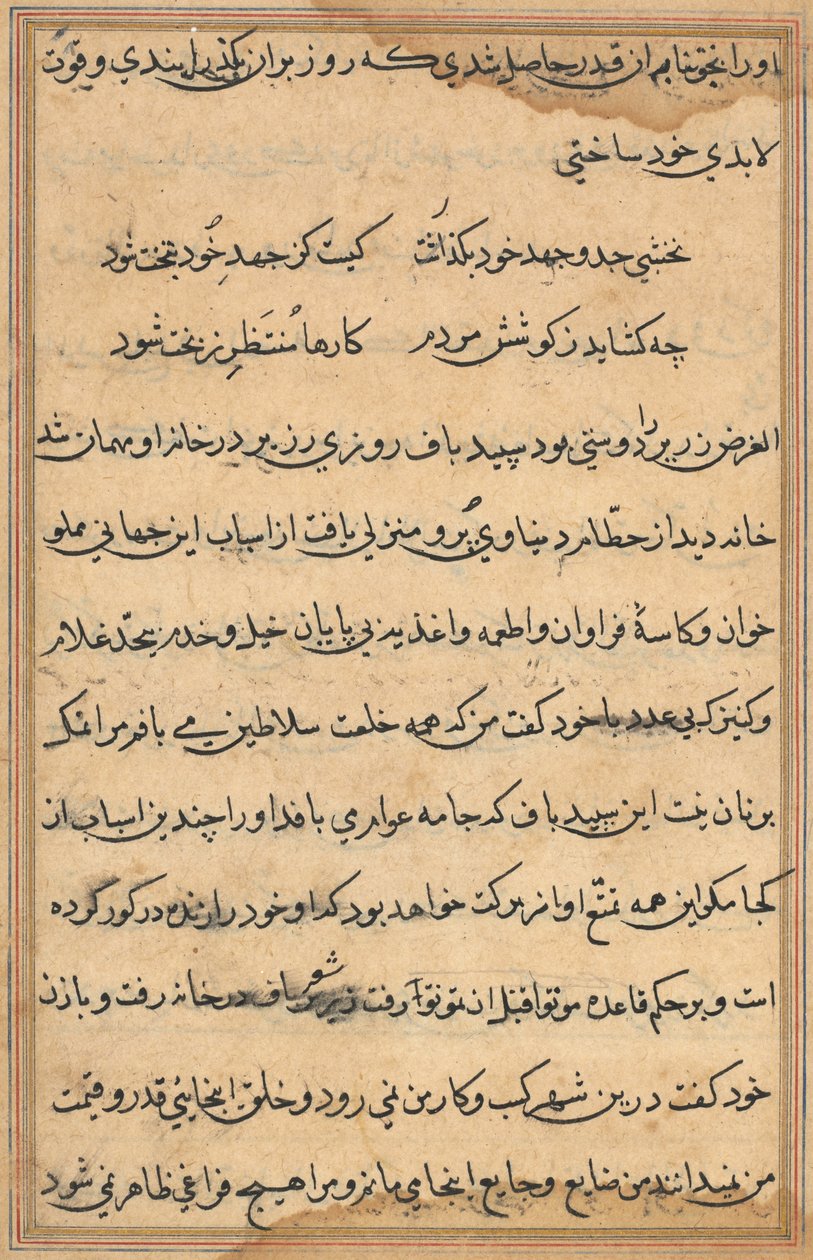 او را بخوتنا بم ان قدر حاصل شدي که روز بران بکذرانیدي و قوت
لابدي خود ساختي
نخشبي جد و جهد خود بکذاشت کیست کز جهدِ خود بتخت شود
چه کشاید ز کوشش مردم کارها مُنتَظَرِ ز بخت شود
الغرض زریر را دوستي بود سپید باف روزي زریر در خانه او مهمان شد
خانه دید از حطّام دنیاوي پُر و منزلي یافت از اسباب این جهاني مملو
خوان و کاسۀ فراوان و اطعمه و اغذیه بي پایان خیل و خدم بیحدّ غلام
و کنیزک بي عدد با خود کفت من که همه خلعت سلاطین مي بافم مرا نمک
بر نان نیست این سپید باف که جامه عوام مي بافد او را چندین اسباب از
کجا مکر این همه تمتّع او از برکت خواهد بود که او خود را زنده در کور کرده
است و بر حکم قاعده موتوا قبل ان تموتوا رفت زریر شعر باف در خانه رفت و با زن
خود کفت درین شهر کسب و کار من نمي رود و خلق اینجایئي قدر و قیمت
من نمیدانند من ضایع و جایع اینجا مي مانم و مرا هیچ فراغي ظاهر نمي شود